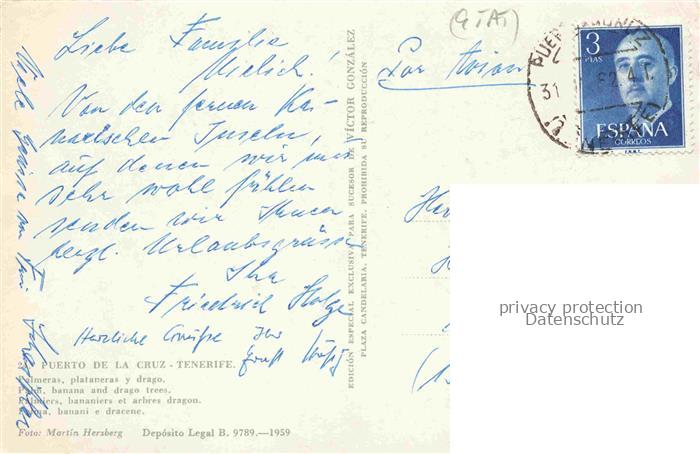 (GTAT)
Liebe Familie
Mielich!
Von den fernen Ka-
narischen Inseln,
auf denen wir uns
sehr wohl fühlen
senden wir Ihnen
herzl. Urlaubsgrüsse
Ihr
Friedrich Holze
Herzliche Grüße Ihr
Ernst
Viele Grüsse von
Par Avion
3
PTAS
ESPAÑA
CORREOS
31
62
PUERTO DE LA CRUZ - TENERIFE.
Palmeras, plataneras y drago.
Palm, banana and drago trees.
Palmiers, bananiers et arbres dragon.
banani e dracene.
Foto: Martin Herzberg Depósito Legal B. 9789.—1959
EDICIÓN ESPECIAL EXCLUSIVA PARA SUCESOR DE VÍCTOR GONZÁLEZ
PLAZA CANDELARIA, TENERIFE. PROHIBIDA SU REPRODUCCIÓN
privacy protection
Datenschutz